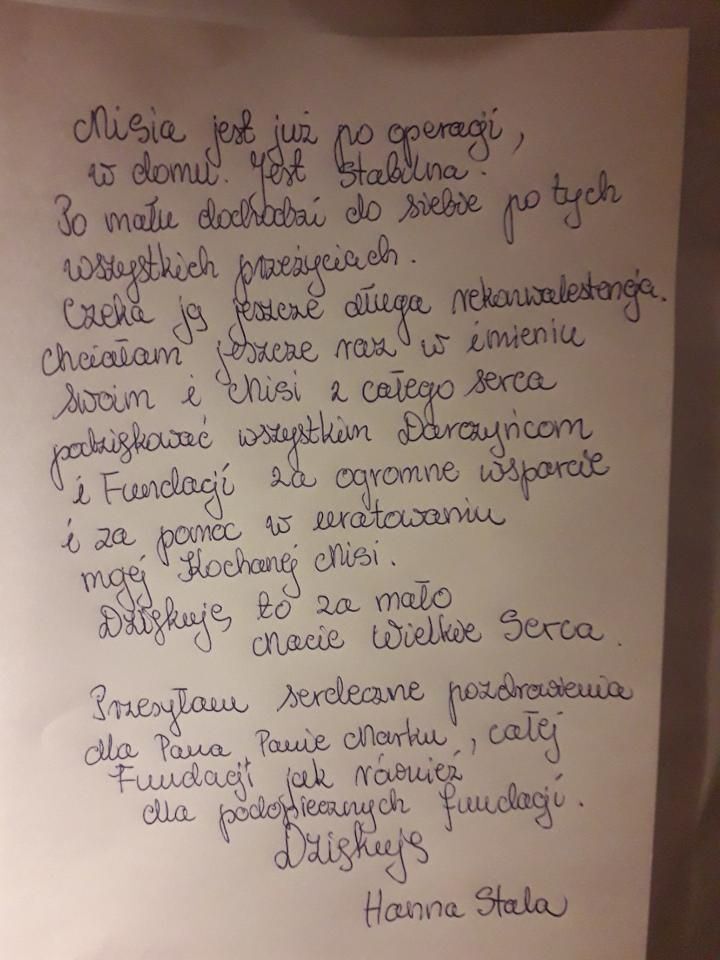 Misia jest już po operacji,
w domu. Jest stabilna.
Po mału dochodzi do siebie po tych
wszystkich przeżyciach.
Czeka ją jeszcze długa rekonwalestencja.
Chciałam jeszcze raz w imieniu
swoim i Misi z całego serca
podziękować wszystkim Darczyńcom
i Fundacji za ogromne wsparcie
i za pomoc w uratowaniu
mojej Kochanej Misi.
Dziękuję to za mało
Macie Wielkie Serca.
Przesyłam serdeczne pozdrowienia
dla Pana, Panie Marku, całej
Fundacji jak również
dla podopiecznych fundacji.
Dziękuję
Hanna Stala